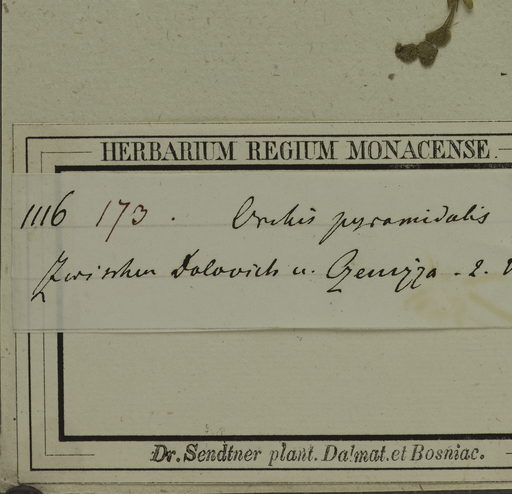 HERBARIUM REGIUM MONACENSE
1116 173. Orchis pyramidalis
Zwischen Dolovich u. - 2.
Dr. Sendtner plant. Dalmat. et Bosniac.